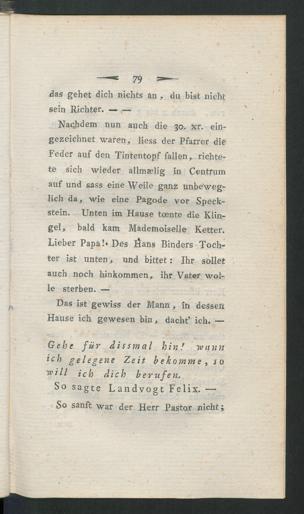 79
das gehet dich nichts an, du bist nicht
sein Richter. — —
Nachdem nun auch die 30. xr. ein-
gezeichnet waren, liess der Pfarrer die
Feder auf den Tintentopf fallen, richte-
te sich wieder allmælig in Centrum
auf und sass eine Weile ganz unbeweg-
lich da, wie eine Pagode vor Speck-
stein. Unten im Hause tœnte die Klin-
gel, bald kam Mademoiselle Ketter.
Lieber Papa! Des Hans Binders Toch-
ter ist unten, und bittet: Ihr sollet
auch noch hinkommen, ihr Vater wol-
le sterben. —
Das ist gewiss der Mann, in dessen
Hause ich gewesen bin, dacht' ich. —
Gehe für dissmal hin! wann
ich gelegene Zeit bekomme, so
will ich dich berufen.
So sagte Landvogt Felix. —
So sanft war der Herr Pastor nicht;